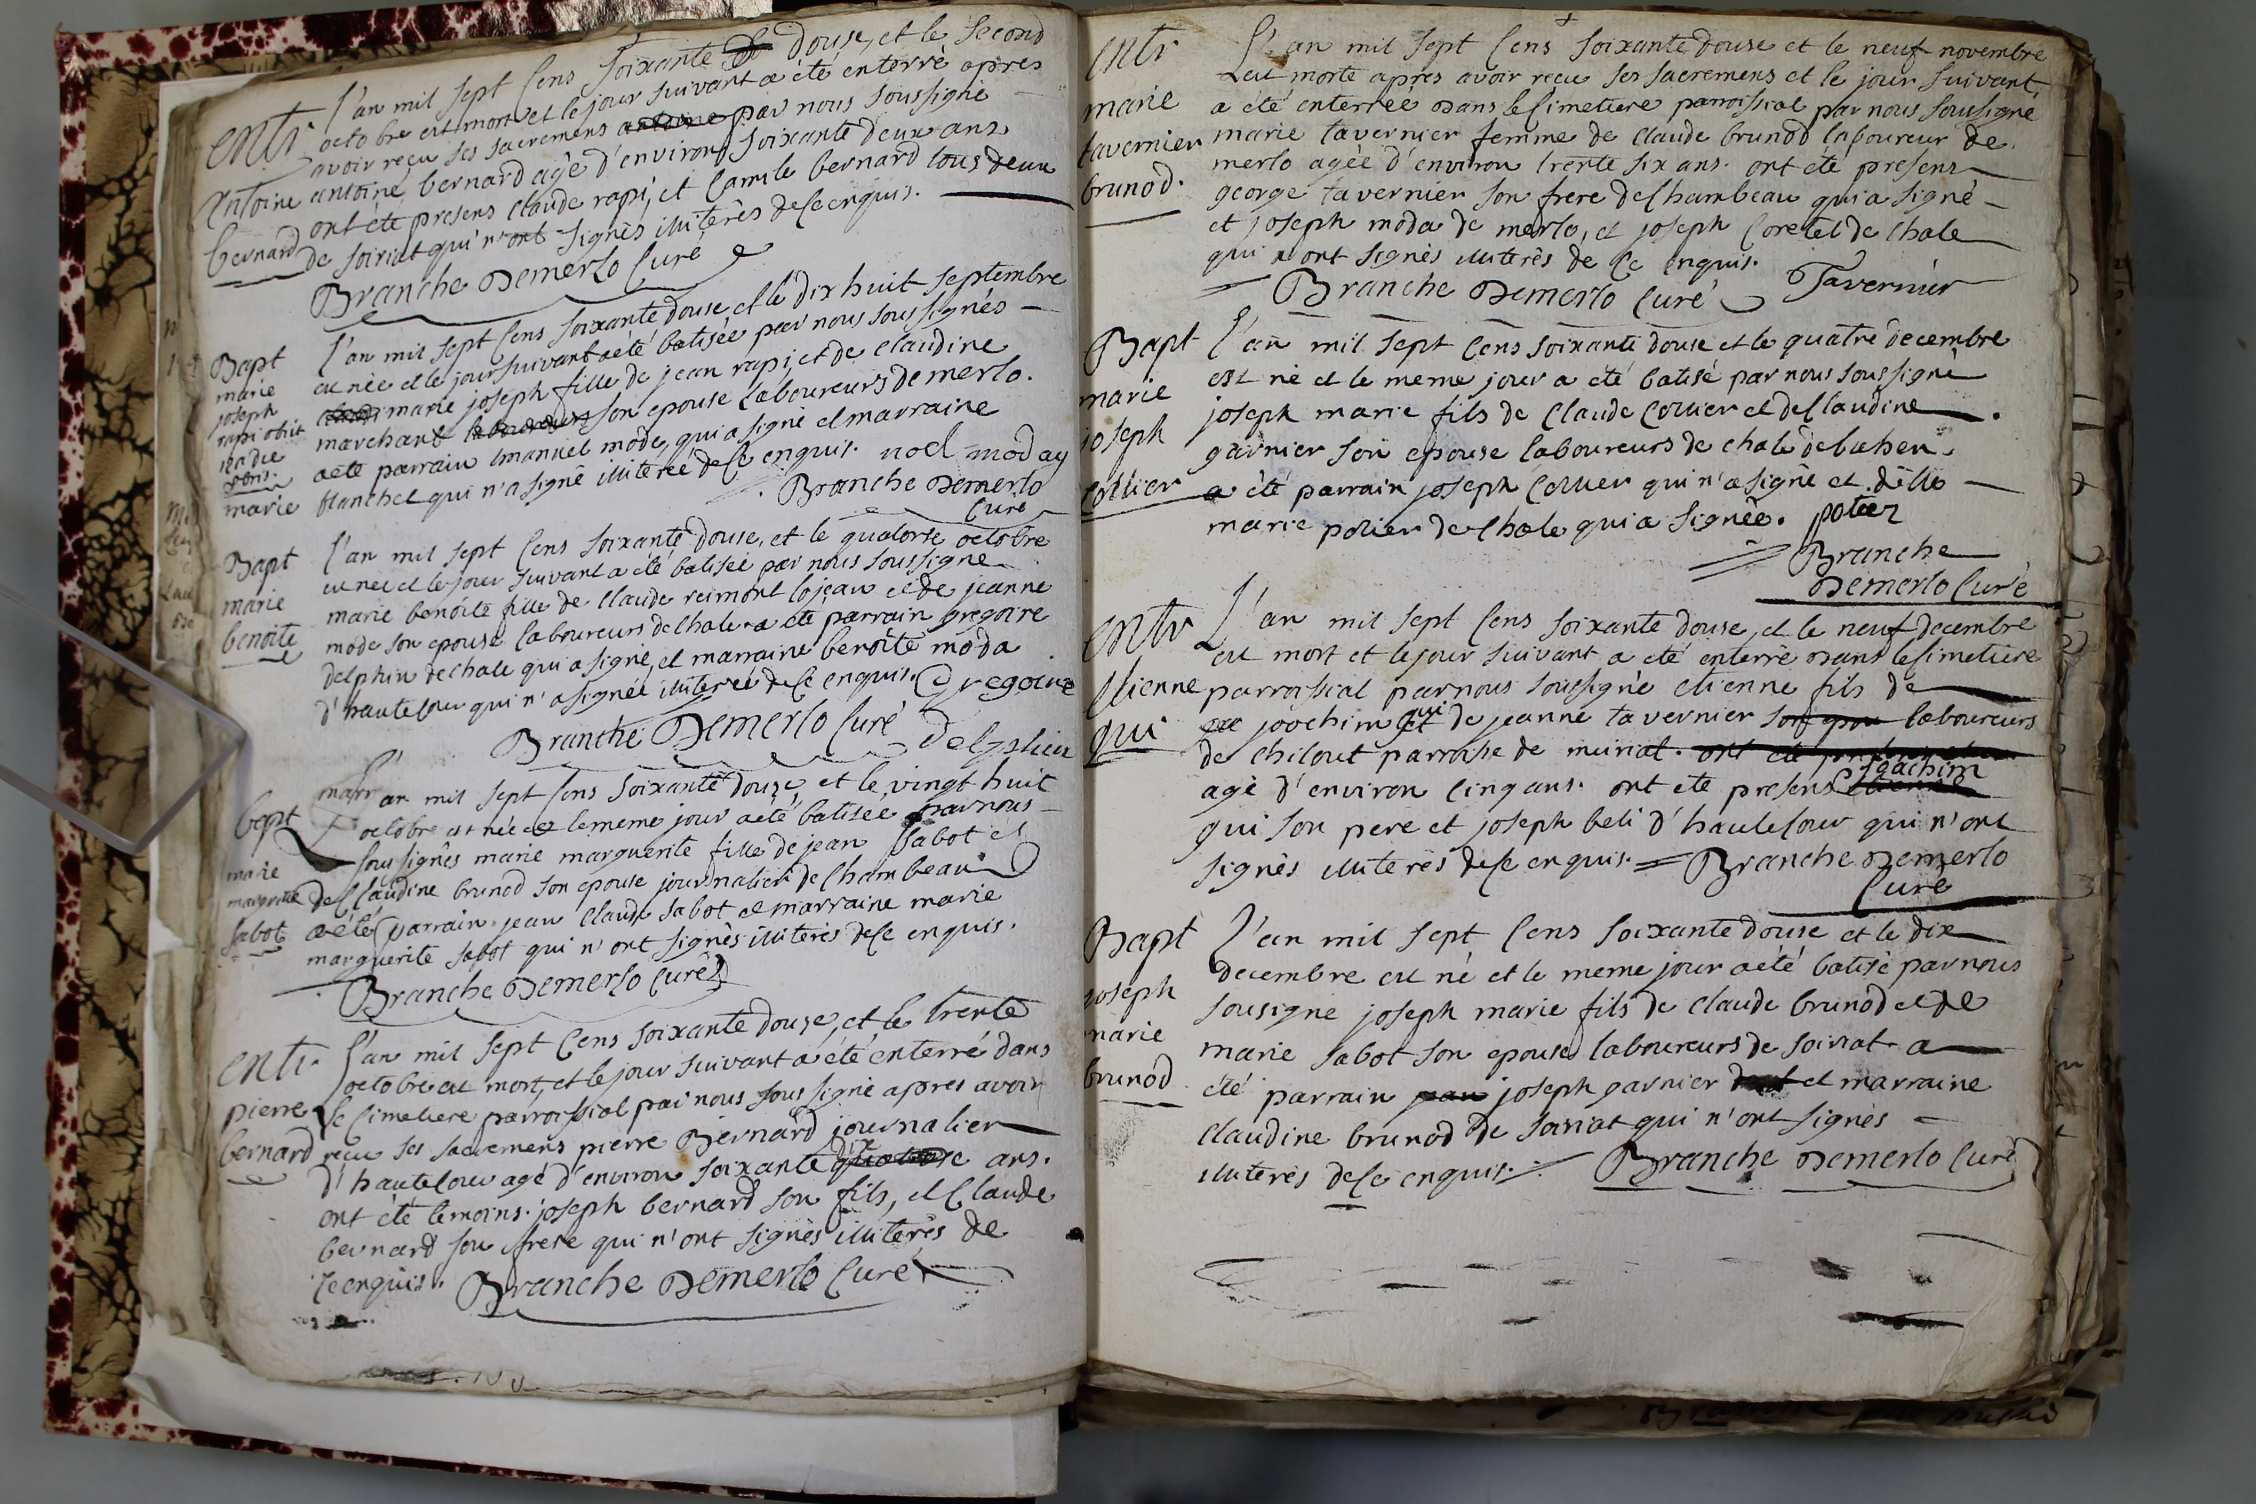 L'an mil sept cens soixante douse, et le second
octobre est mort et le jour suivant a été enterré apres
avoir reçu ses sacremens antoine par nous soussigné
entr
antoine
bernard
antoine bernard agê d'environ soixante deux ans
ont eté presens claude rapi, et bernard tous deux
de soiriat qui n'ont signès illiterês de ce enquis.
Branche Demerlo Curé
Bapt
marie
joseph
rapi obiit
marie
L'an mil sept cens soixante douse, et le dix huit septembre
est née et le jour suivant a été batisée par nous soussignés
marie joseph fille de jean rapi, et de claudine
marchant laboureurs son epouse laboureurs de merlo.
a eté parrain emanuel mode, qui a signé et marraine
blanchet qui n'a signé illiterée de ce enquis. noel moday
Branche Demerlo
Curé
Bapt
marie
benoite
L'an mil sept cens soixante douse, et le quatorse octobre
est née et le jour suivant a été batisée par nous soussigné
marie benoite fille de claude reimont lojean et de jeanne
mode son epouse laboureurs de chale a eté parrain gregoire
delphin de chale qui a signé, et marraine benoite moda
d'hautecour qui n'a signée illiterée de ce enquis. Gregoire
Branche Demerlo Curé delphin
bapt
marie
marguerite
sabot
L'an mil sept cens soixante douze, et le vingt huit
octobre est née et le meme jour a été batisée par nous
soussignês marie marguerite fille de jean sabot et
de claudine brunod son epouse journalier de chambeau
a été parrain jean claude sabot et marraine marie
marguerite sabot qui n'ont signès illiterès de ce enquis.
Branche Demerlo Curé
entr.
pierre
bernard
L'an mil sept cens soixante douze, et le trente
octobre est mort, et le jour suivant a été enterré dans
le cimetiere parroissial par nous soussigné apres avoir
reçu ses sacremens pierre Bernard journalier
d'hautecour agé d'environ soixante dix ans.
ont été temoins. joseph bernard son fils, et claude
bernard son frere qui n'ont signès illiterês de
ce enquis. Branche Demerlo Curé
entr
marie
tavernier
brunod.
L'an mil sept cens soixante douse et le neuf novembre
est morte apres avoir reçu ses sacremens et le jour suivant
a été enterrée dans le cimetiere parroissial par nous sousigné
marie tavernier femme de claude brunod laboureur de
merlo agée d'environ trente six ans. ont été presens
george tavernier son frere de chambeau qui a signé
et joseph moda de merlo, et joseph coretel de chale
qui n'ont signès illiterês de ce enquis.
Branche Demerlo Curé Tavernier
Bapt
marie
joseph
collier
L'an mil sept cens soixante douse et le quatre decembre
est né et le meme jour a été batisé par nous soussigné
joseph marie fils de claude collier et de claudine
garnier son epouse laboureurs de chale
a été parrain joseph collier qui n'a signé et dêlle
marie potier de chale qui a signée. potier
Branche
Demerlo Curé
entr
etienne
qui
L'an mil sept cens soixante douse, et le neuf decembre
est mort et le jour suivant a eté enterré dans le cimetiere
parroissial par nous soussigné etienne fils de
joachim qui et de jeanne tavernier son epou laboureurs
de chilout parroise de miriat.
agé d'environ cinq ans. ont eté presens joachim
qui son pere et joseph beli d'hautecour qui n'ont
signès illiterês de ce enquis. Branche Demerlo
Curé
Bapt
joseph
marie
brunod
L'an mil sept cens soixante douse et le dix
decembre est né et le meme jour a été batisé par nous
sousigné joseph marie fils de claude brunod et de
marie sabot son epouse laboureurs de soiriat a
été parrain joseph garnier et marraine
claudine brunod de soiriat qui n'ont signès
illiterès de ce enquis. Branche Demerlo Curé